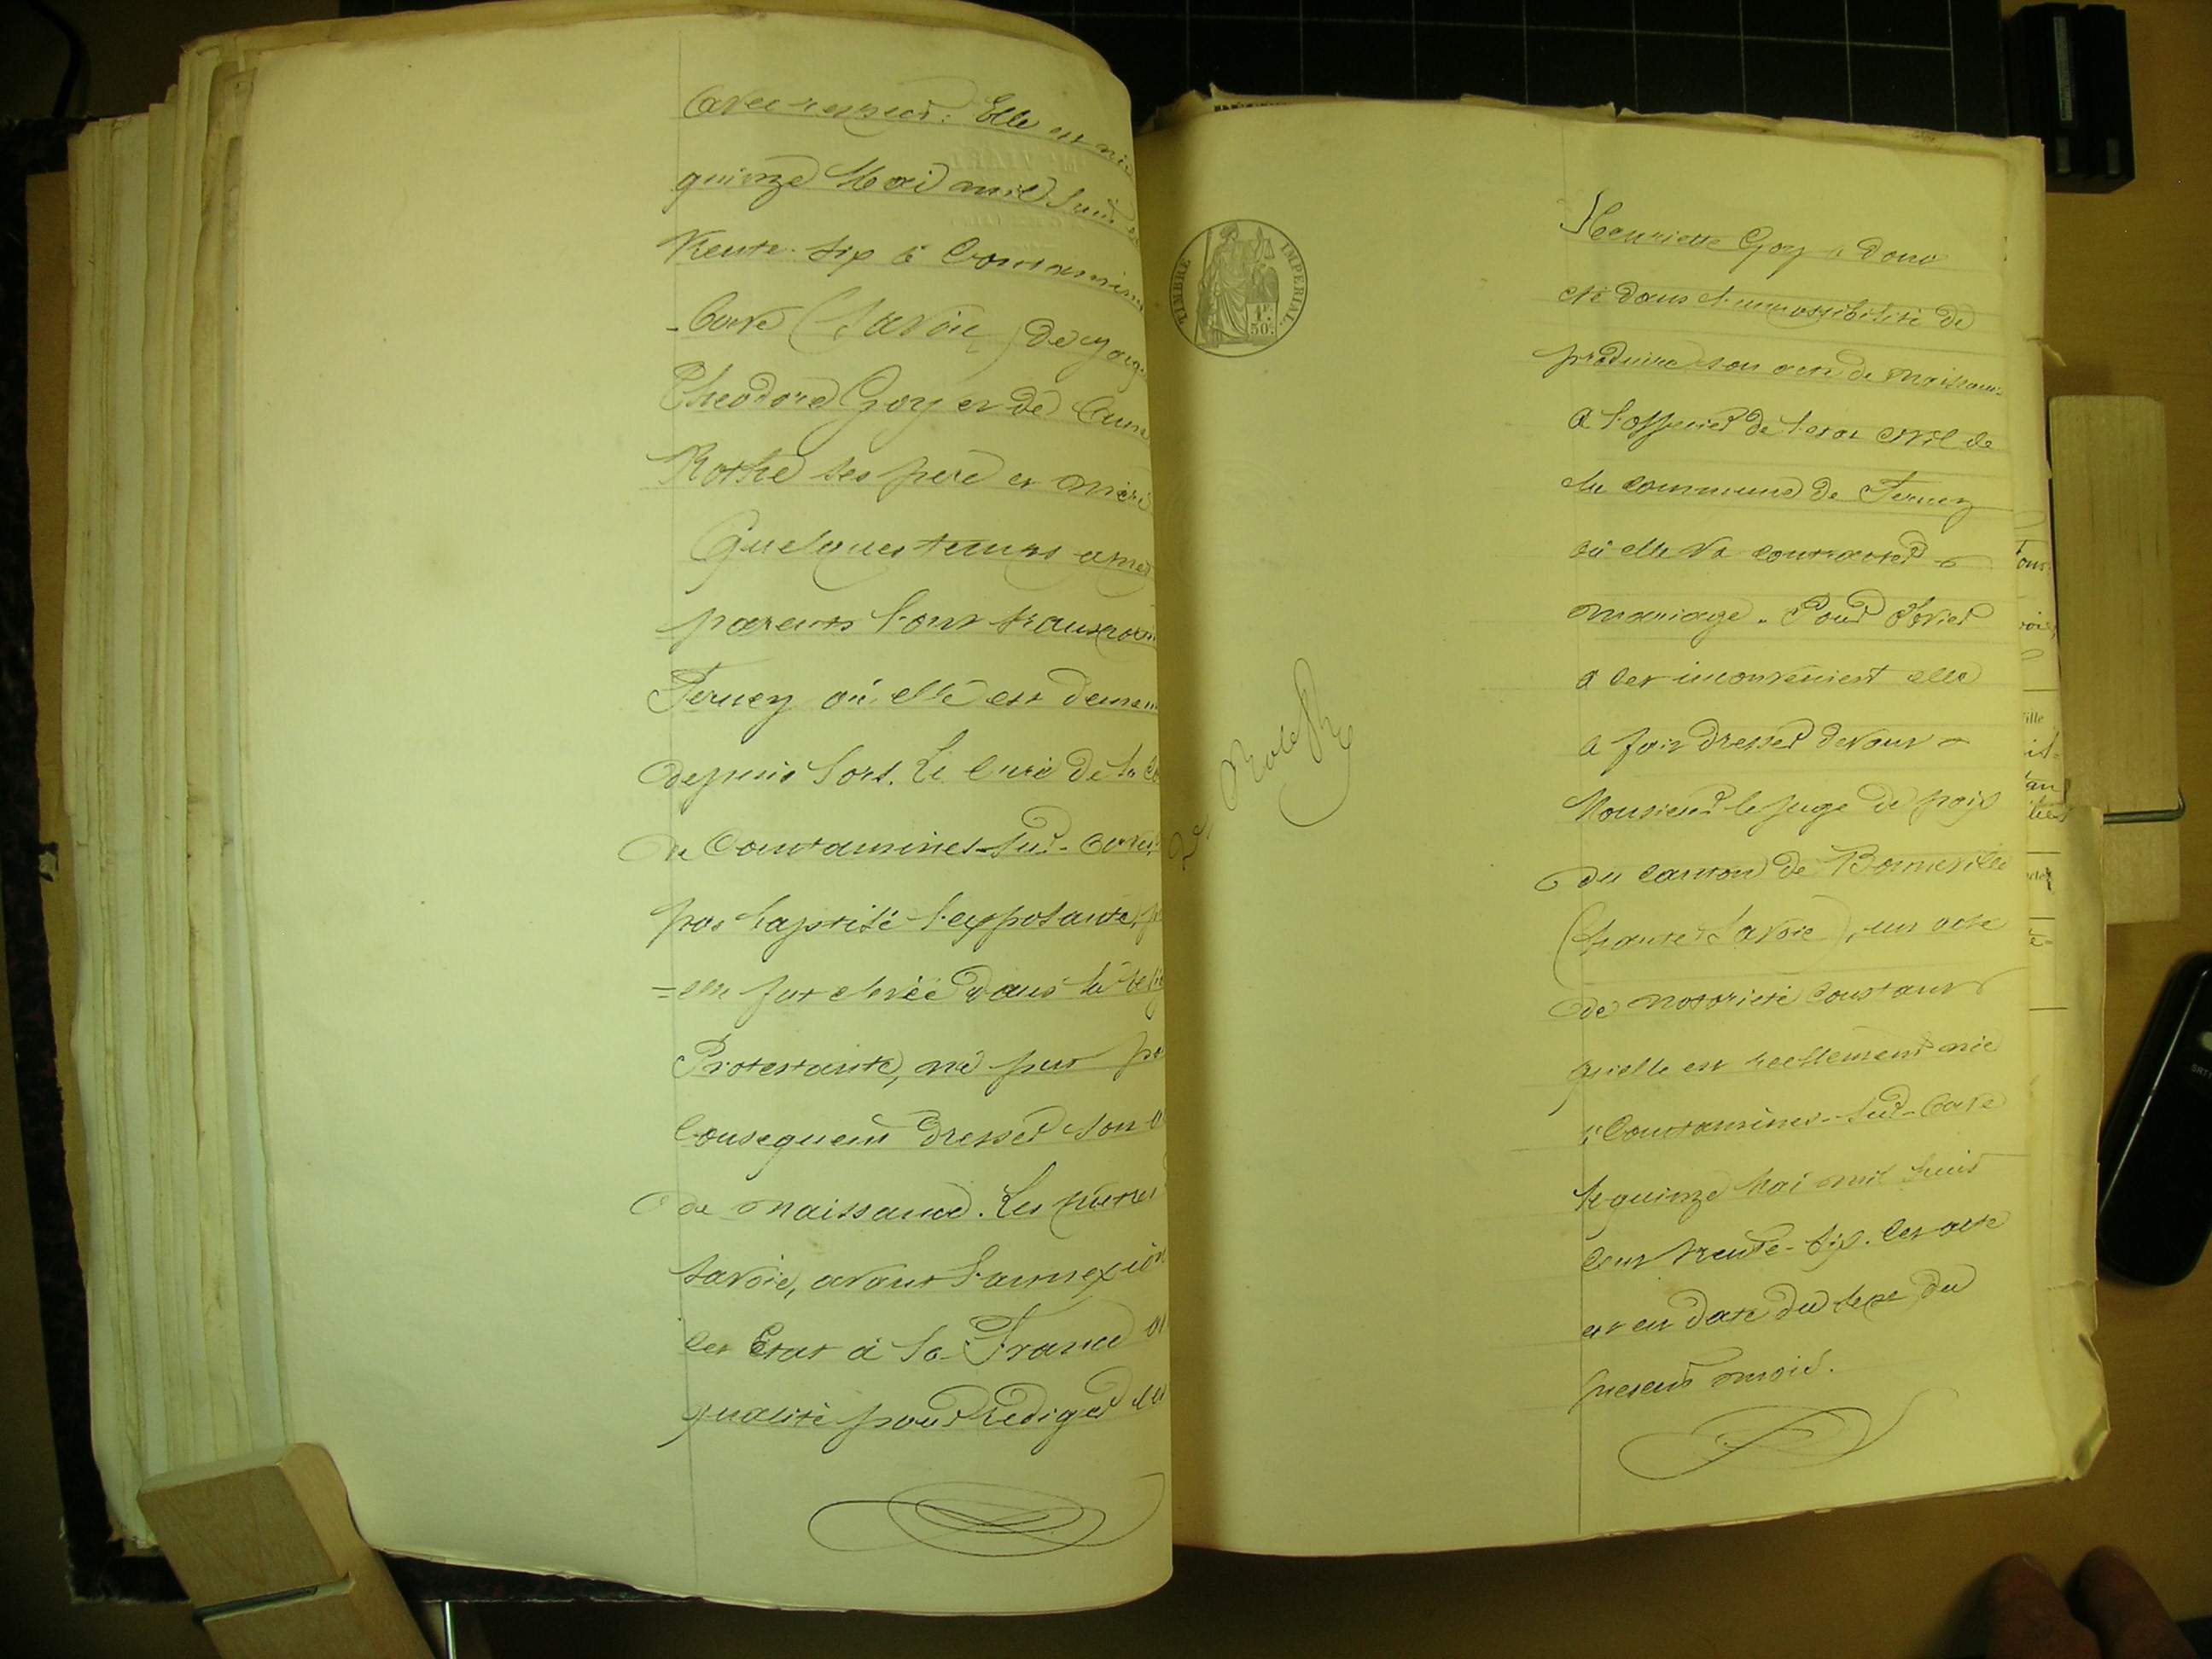 avec respect. Elle est née
quinze Mai mil huit
trente-six à Contamine
-Arve (Savoie) de
Théodore Goy et de Anne
Rothe ses père et mère
Quelques temps après
parents l'ont transporté
Ferney où elle est
depuis lors. Le Curé de la
de Contamines-sur-Arve
pas baptisé l'exposante,
=elle fut élevée dans la
Protestante, ne put
conséquent dresser son
de naissance. Les
Savoie, avant l'annexion
cet Etat à la France
qualité pour rédiger
TIMBRE IMPERIAL
1F. 50c.
Role
Henriette Goy a donc
été dans l'impossibilité de
produire son acte de naissance
à l'officier de l'état civil de
la commune de Ferney
où elle va contracter
mariage. Pour obvier
à cet inconvenient elle
a fait dresser devant
Monsieur le juge de paix
du canton de Bonneville
(haute Savoie), un acte
de notoriété constant
qu'elle est reellement née
à Contamines-sur-Arve
le quinze Mai mil huit
cent trente-six. Cet acte
est en date du sept du
present mois.